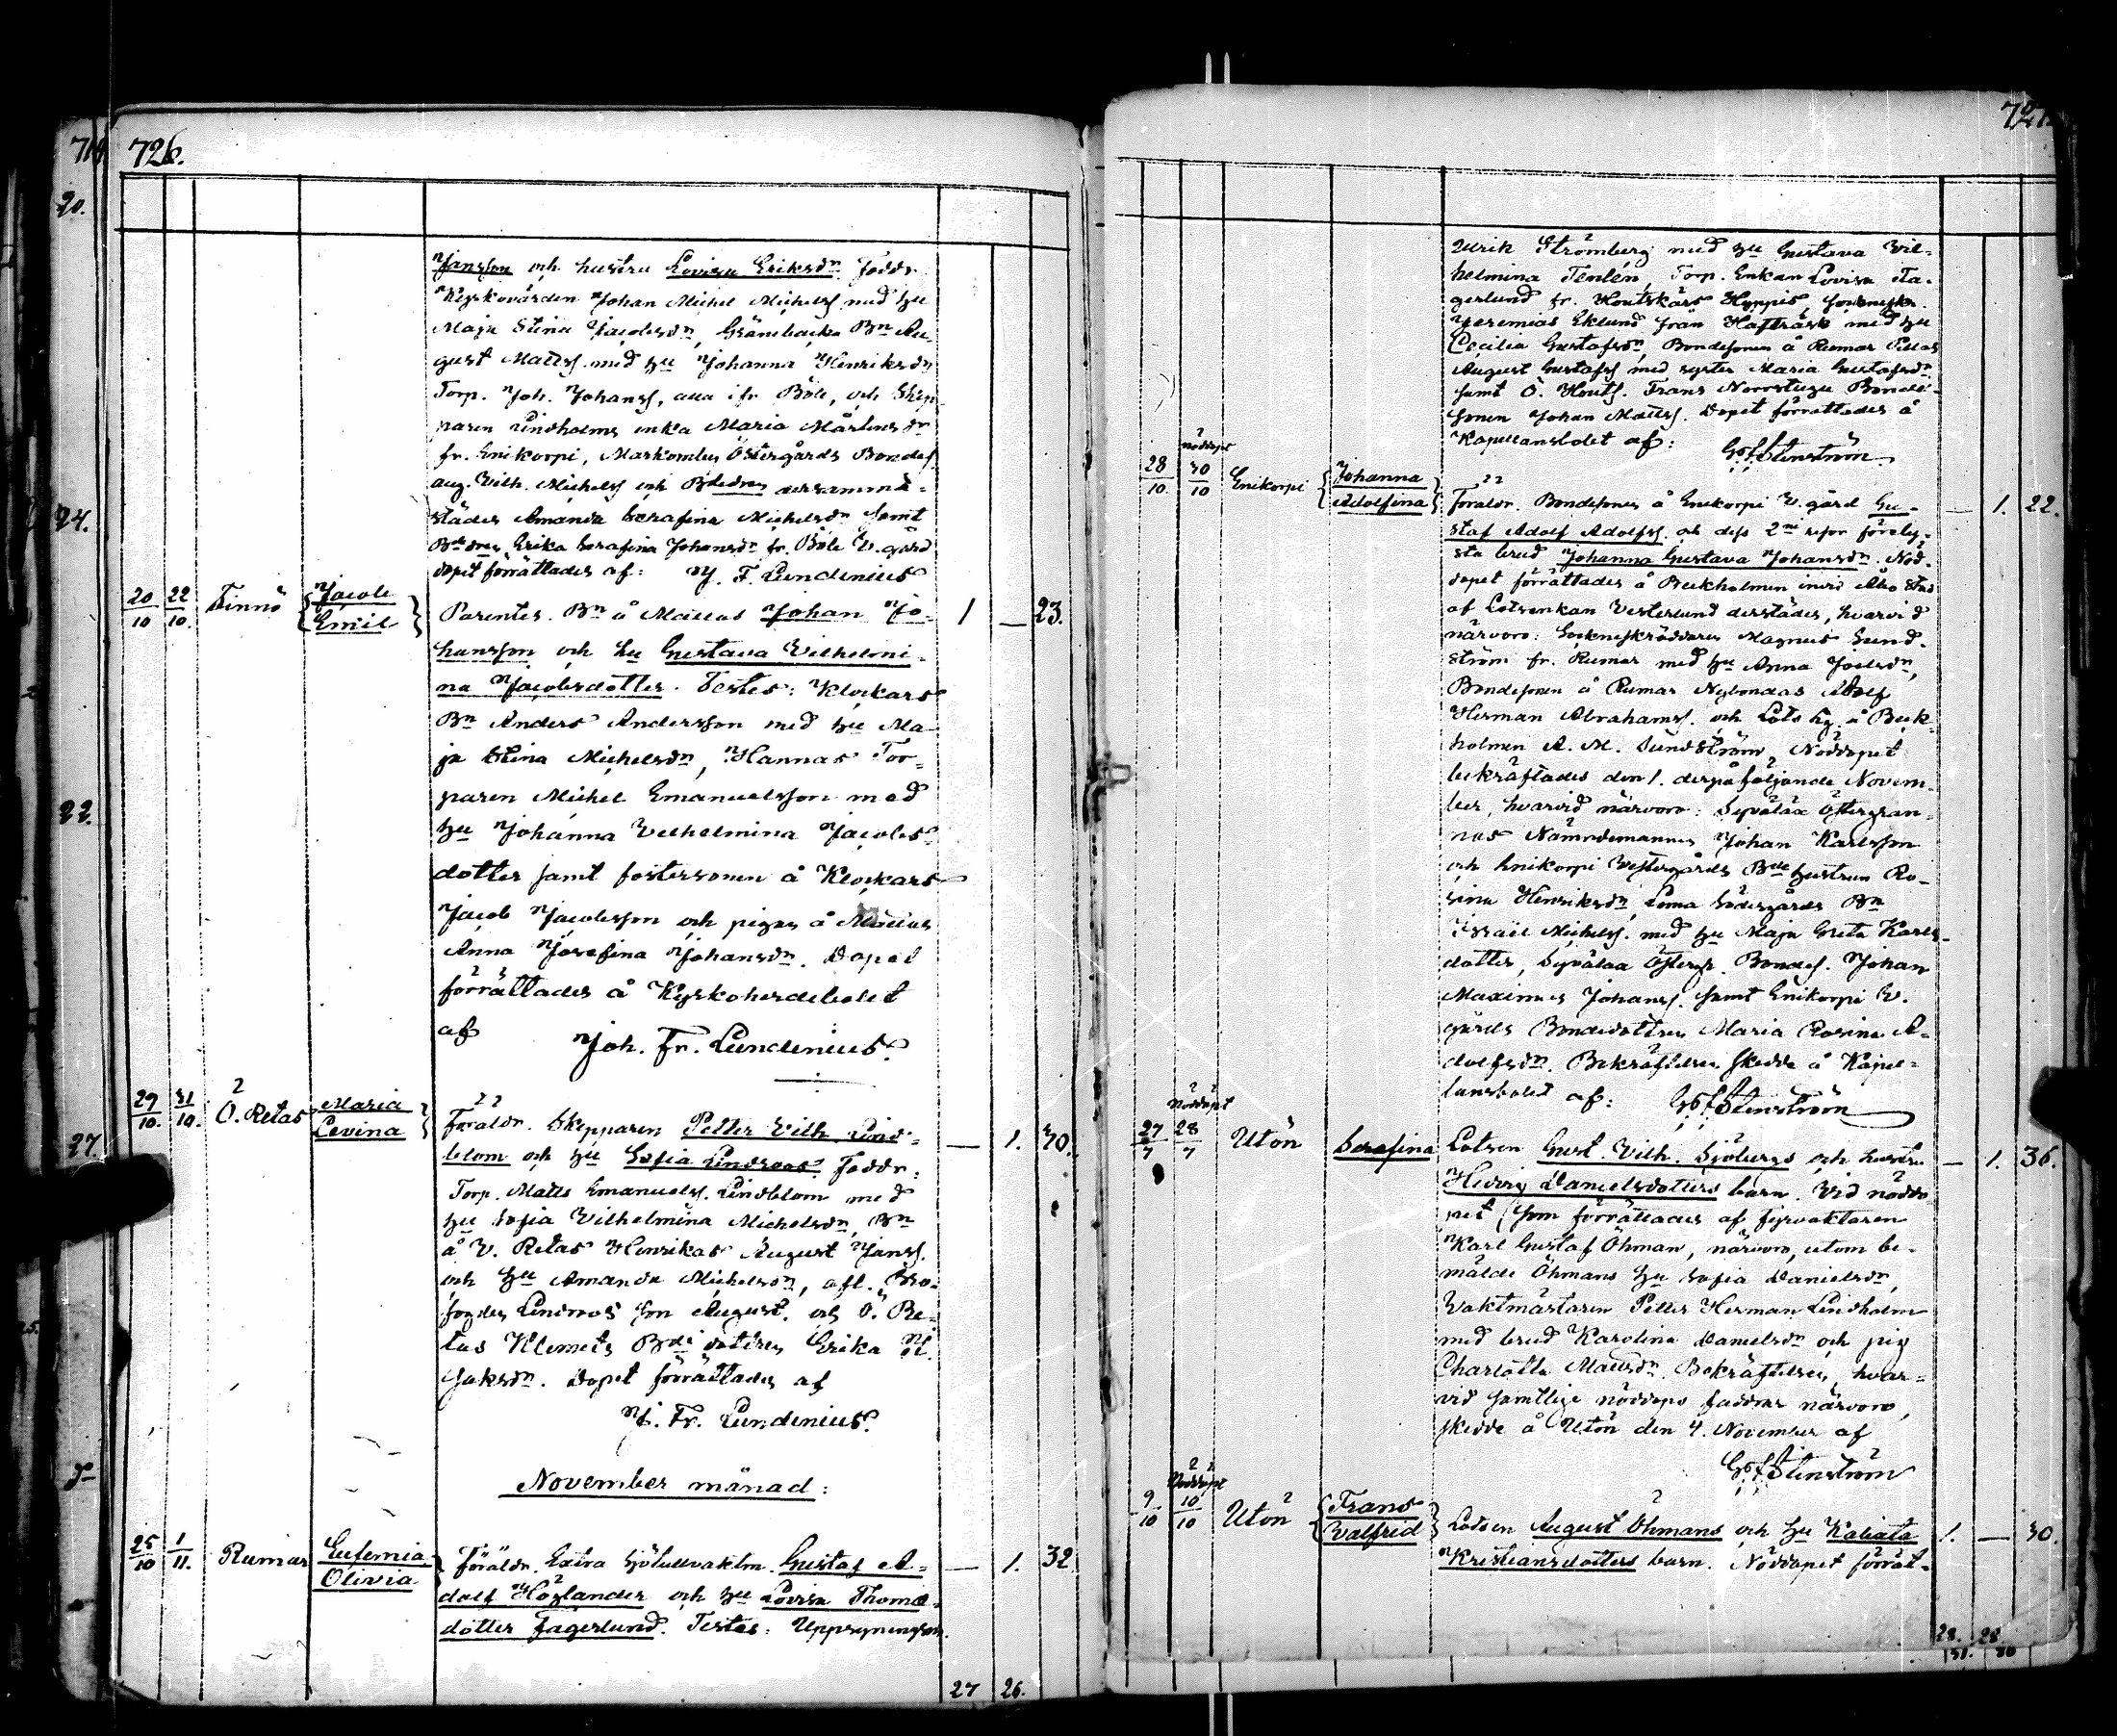 726.
Jansson och hustru Lovisa Eriksdn Faddr.
Kyrkovärden Johan Michel Michelss. med Hu
Maja Stina Jacobsdn, Gränsbacka Bn Au-
gust Matts. med Hu Johanna Henriksdn
Torp. Joh. Johanss, alla ifr. Böle, och Skep-
paren Lindholms enka Maria Mårtensdn
fr. Enikorpi, Markomby Östergårds Bondes.
Aug. Vilh. Michelss och Bdedren dersamma-
städes Amanda Serafina Michelsdn samt
Bdedren Erika Serafina Johansdn fr. Böle V. gård
dopet förrättades af: J. F. Lundenius
20/10 22/10. Finnö Jacob Emil
Parentes. Bn å Mattas Johan Jo- 1 — 23.
hansson och Hu Gustava Vilhelmi-
na Jacobsdotter. Testes: Klockars
Bn Anders Andersson med Hu Ma-
ja Stina Michelsdn, Hannas Tor-
paren Michel Emanuelsson med
Hu Johanna Vilhelmina Jacobs-
dotter samt fostersonen å Klockars
Jacob Jacobsson och pigan å Mattas
Anna Josefina Johansdn. Dopet
förrättades å Kyrkoherdebolet
af Joh. Fr. Lundenius.
29/10. 31/10. Ö. Retas Maria Levina
Föräldr. Skepparen Petter Vilh. Lind- — 1. 30.
blom och Hu Sofia Lindroos. Faddr:
Torp. Matts Emanuelss. Lindblom med
Hu Sofia Vilhelmina Michelsdn, Bn
å V. Retas Henrikas August Janss.
och Hu Amanda Michelsdn, afl. Bro-
fogden Lindroos son August. och Ö. Re-
tas Klemets Bde dottren Erika
Isaksdn. Dopet förrättades af
J. Fr. Lundenius.
November månad:
25/10 1/11. Rumar Eufemia Olivia
Föräldr. Extra Sjötullvaktm. Gustaf A- — 1. 32.
dolf Höglander och Hu Lovisa Thomæ-
dotter Fagerlund. Testes: Uppsyningsm.
27 26.
727.
Ulrik Strömberg med Hu Gustava Vil-
helmina Tenlén, Torp. Enkan Lovisa Fa-
gerlund fr. Houtskärs Hyppis, Sockneskr.
Jeremias Eklund från Hafträsk med Hu
Cecilia Gustafsdn, Bondesonen å Rumar Pellas
August Gustafss med syster Maria Gustafsdn
samt Ö. Houts. Frans Norrstuga Bonde-
sonen Johan Mattss. Dopet förrättades å
Kapellansbolet af: G. F. Stenström.
28/10. Nöddöpt 30/10 Enikorpi Johanna Adolfina
Föräldr. Bondesonen å Enikorpi V. gård Gu- — 1. 22.
staf Adolf Adolfss. och dess 2ne resor förelof-
sta brud Johanna Gustava Johansdn. Nöd-
dopet förrättades å Beckholmen invid Åbo Stad
af Lotsenkan Vesterlund derstädes, hvarvid
närvoro: Sockneskräddaren Magnus Sund-
ström fr. Rumar med Hu Anna Joelsdn,
Bondesonen å Rumar Nybondas Adolf
Herman Abrahamss. och Lots å Beck-
holmen A. M. Sundström. Nöddopet
bekräftades den 1. derpåföljande Novem-
ber, hvarvid närvoro: Syvälax Östergran-
nas Nämndemannen Johan Karlsson
och Enikorpi Vestergårds Bde hustrun Ro-
sina Henriksdn, Loma Södergårds Bn
Israel Michelss. med Hu Maja Greta Karls-
dotter, Syvälax Östergr. Bondes. Johan
Maximus Johanss. samt Enikorpi V.
gårds Bondedottren Maria Rosina A-
dolfsdn. Bekräftelsen skedde å Kapel-
lansbolet af: G. F. Stenström
27/7 Nöddöpt 28/7 Utön Serafina
Lotsen Gust. Vilh. Sjöbergs och hustru — 1. 36.
Hedvig Danielsdotters barn. Vid nöddo-
pet (som förrättades af fyrvaktaren
Karl Gustaf Öhman, närvoro, utom be-
mälde Öhmans Hu Sofia Danielsdn,
Vaktmästaren Petter Herman Lindholm
med brud Karolina Danielsdn och pig
Charlotta Mattsdn. Bekräftelsen, hvar-
vid samtlige nöddops faddrar närvoro,
skedde å Utön den 4. November af
G. F. Stenström
9/10 Nöddöpt 10/10 Utön Frans Valfrid
Lotsen August Öhmans och Hu Kaliata 1. — 30.
Kristiansdotters barn. Nöddopet förrät-
28. 28.